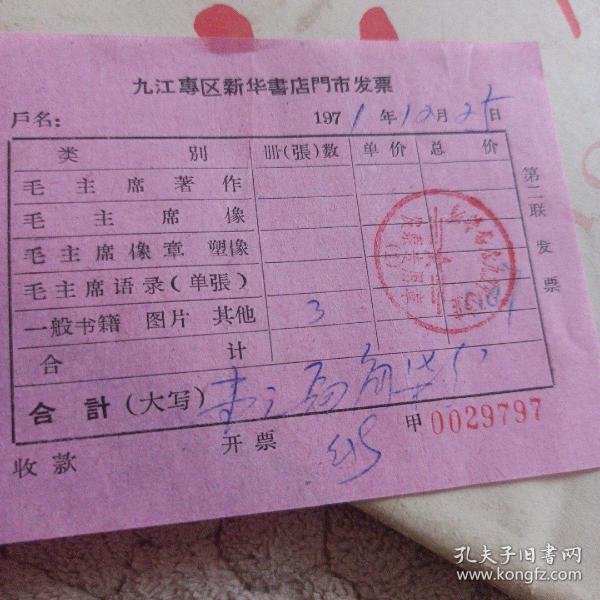 九江專区新华書店門市发票
戶名： 1971年12月25日
类 別 冊(張)数 单价 总价
毛主席著作
毛主席像
毛主席像章 塑像
毛主席语录(单張)
一般书籍 图片 其他 3
合 计
合計(大写)
收款 开票 甲 0029797
第二联 发票
孔夫子旧書网
www.kongfz.com